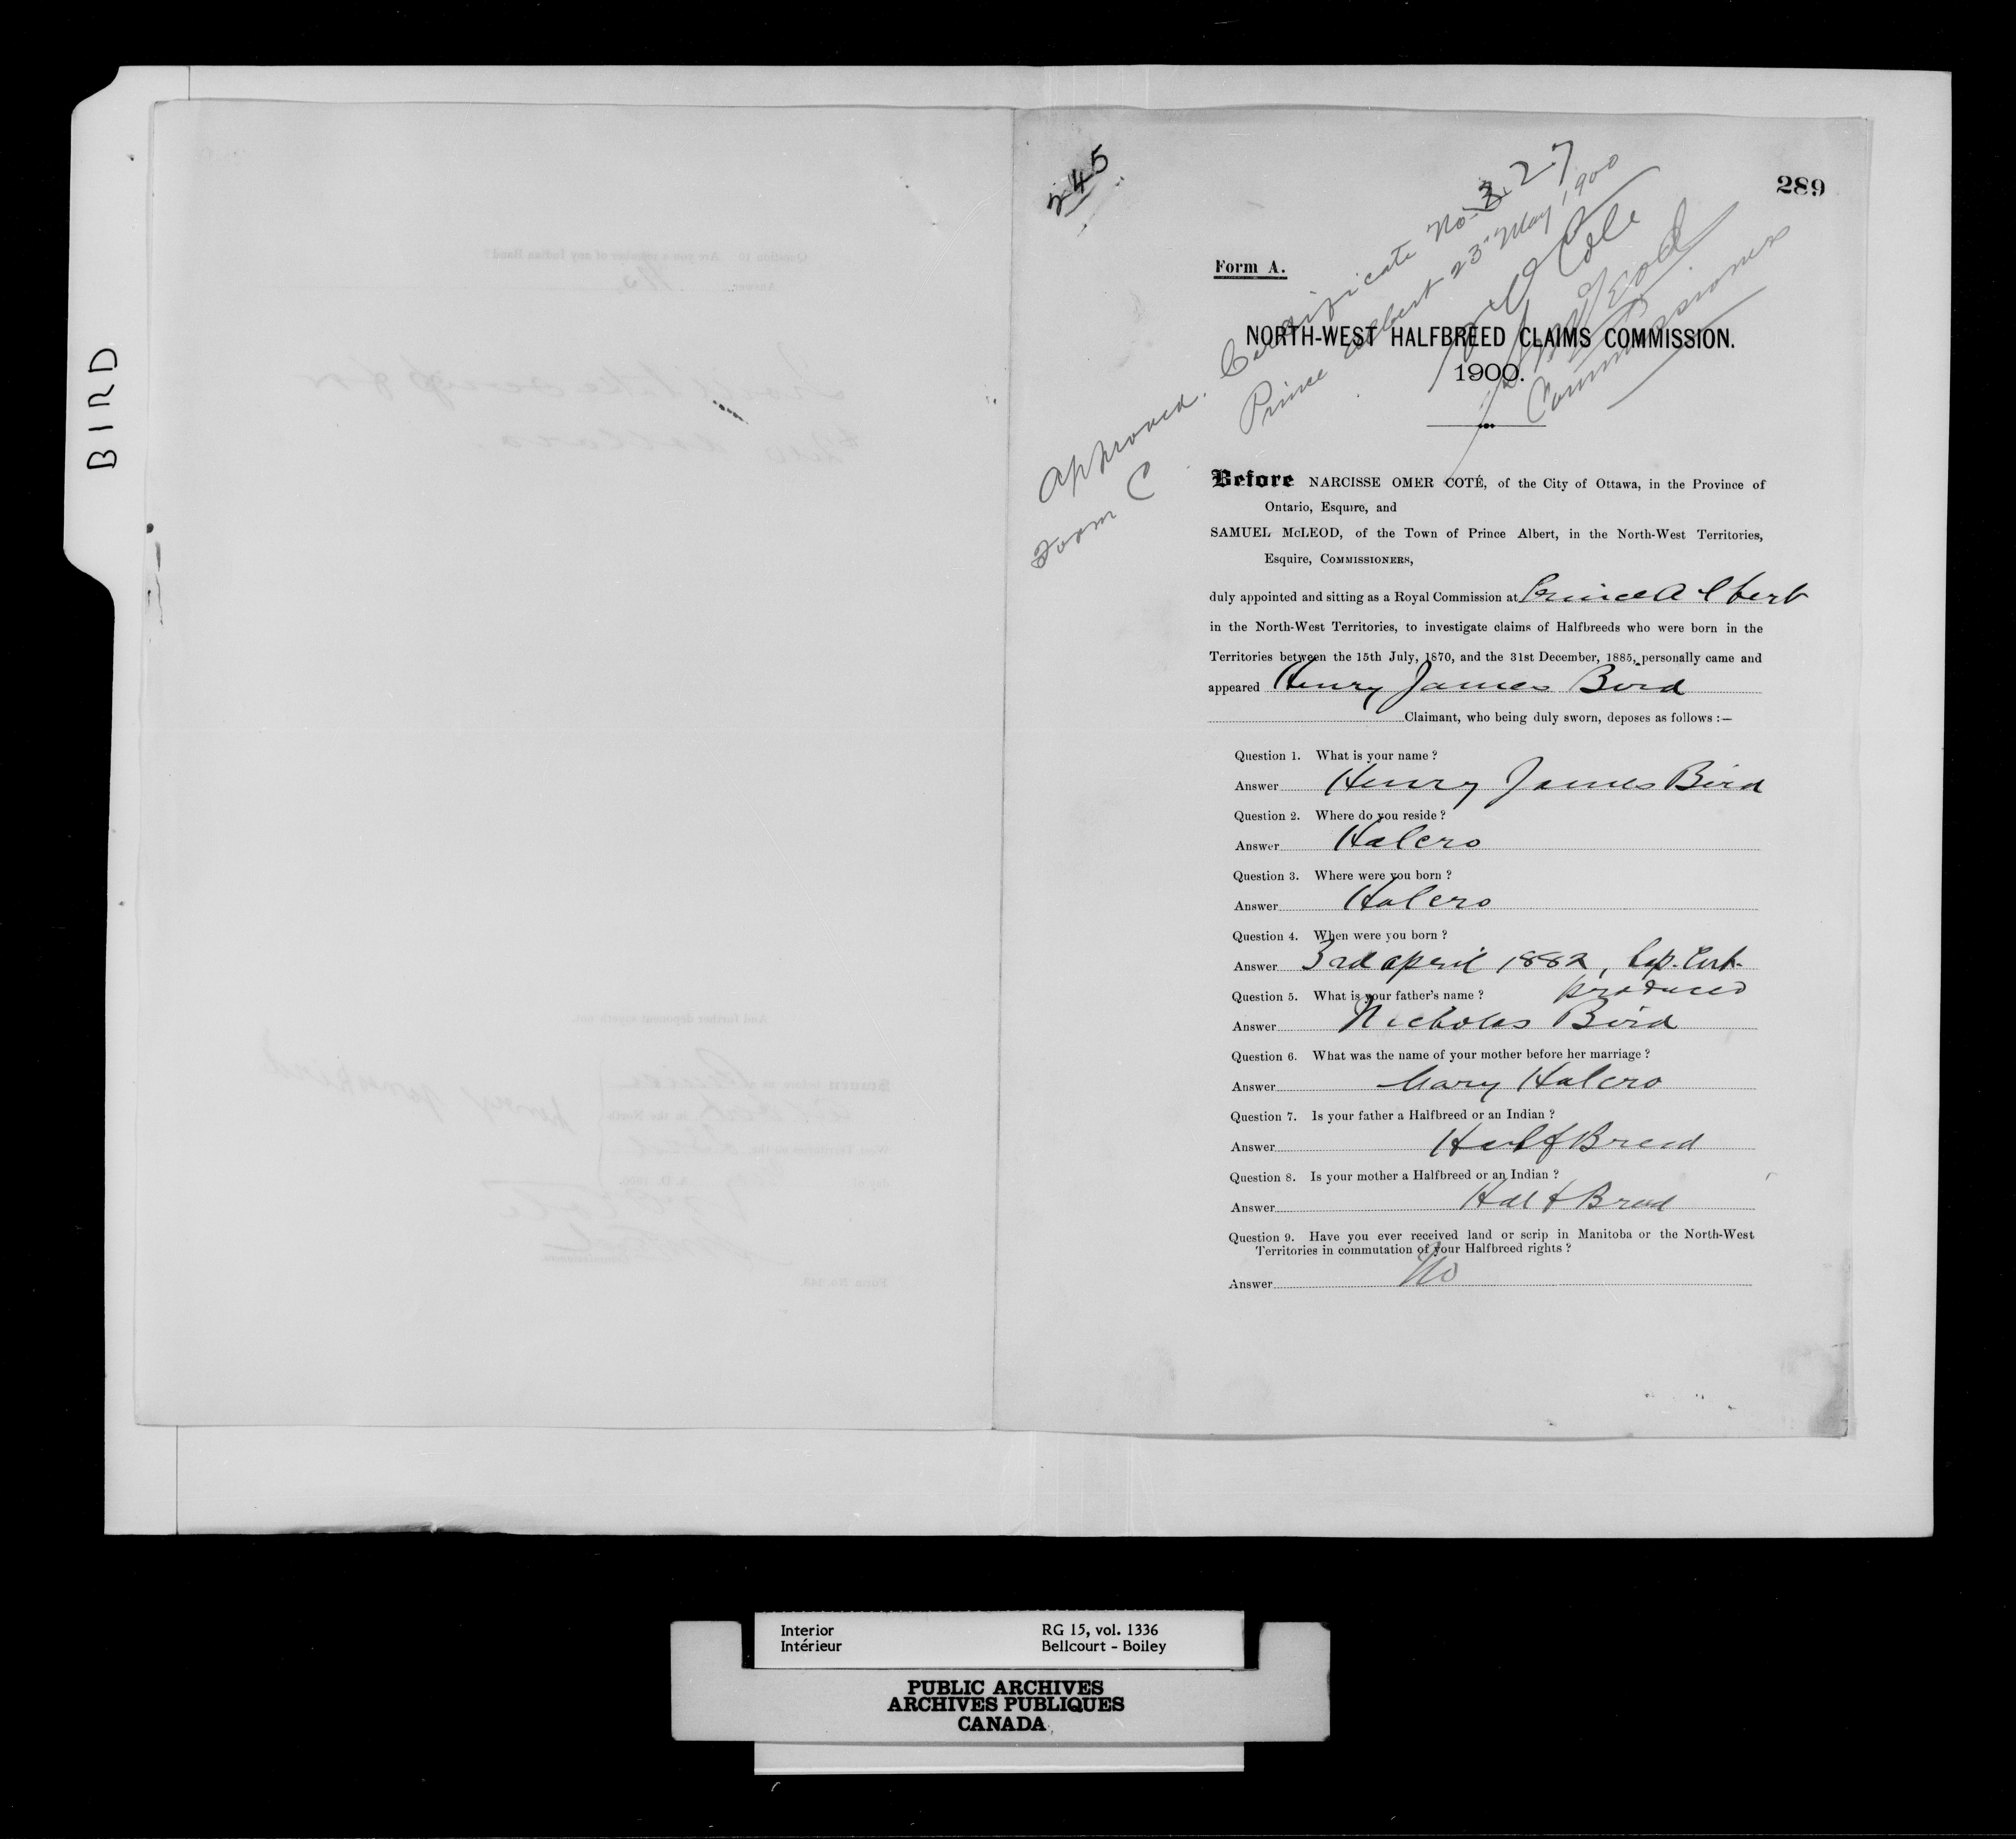 BIRD
245
289
Approved. Certificate No. 327
Form C
Prince Albert 23rd May 1900
N O Coté
McLeod
Commissioners
Form A.
NORTH-WEST HALFBREED CLAIMS COMMISSION.
1900.
Before NARCISSE OMER COTÉ, of the City of Ottawa, in the Province of
Ontario, Esquire, and
SAMUEL McLEOD, of the Town of Prince Albert, in the North-West Territories,
Esquire, COMMISSIONERS,
duly appointed and sitting as a Royal Commission at Prince Albert
in the North-West Territories, to investigate claims of Halfbreeds who were born in the
Territories between the 15th July, 1870, and the 31st December, 1885, personally came and
appeared Henry James Bird
Claimant, who being duly sworn, deposes as follows :—
Question 1. What is your name ?
Answer Henry James Bird
Question 2. Where do you reside ?
Answer Halcro
Question 3. Where were you born ?
Answer Halcro
Question 4. When were you born ?
Answer 3rd april 1882, Bap. Cert.
produced
Question 5. What is your father's name ?
Answer Nicholas Bird
Question 6. What was the name of your mother before her marriage ?
Answer Mary Halcro
Question 7. Is your father a Halfbreed or an Indian ?
Answer Half Breed
Question 8. Is your mother a Halfbreed or an Indian ?
Answer Half Breed
Question 9. Have you ever received land or scrip in Manitoba or the North-West
Territories in commutation of your Halfbreed rights ?
Answer No
Interior
Intérieur
RG 15, vol. 1336
Bellcourt - Boiley
PUBLIC ARCHIVES
ARCHIVES PUBLIQUES
CANADA